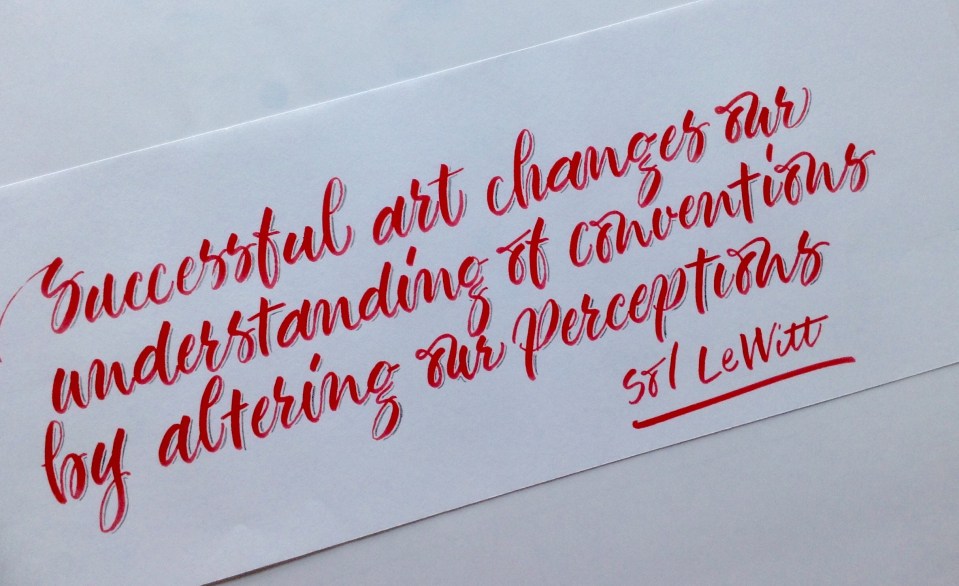 Successful art changes our
understanding of conventions
by altering our perceptions
Sol LeWitt